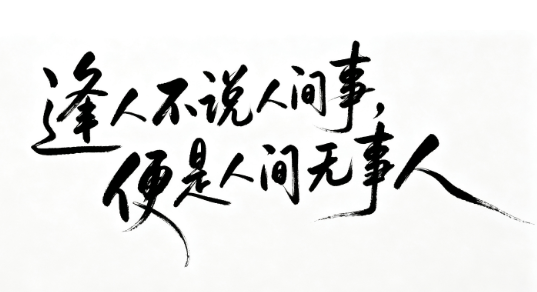 逢人不说人间事，
便是人间无事人